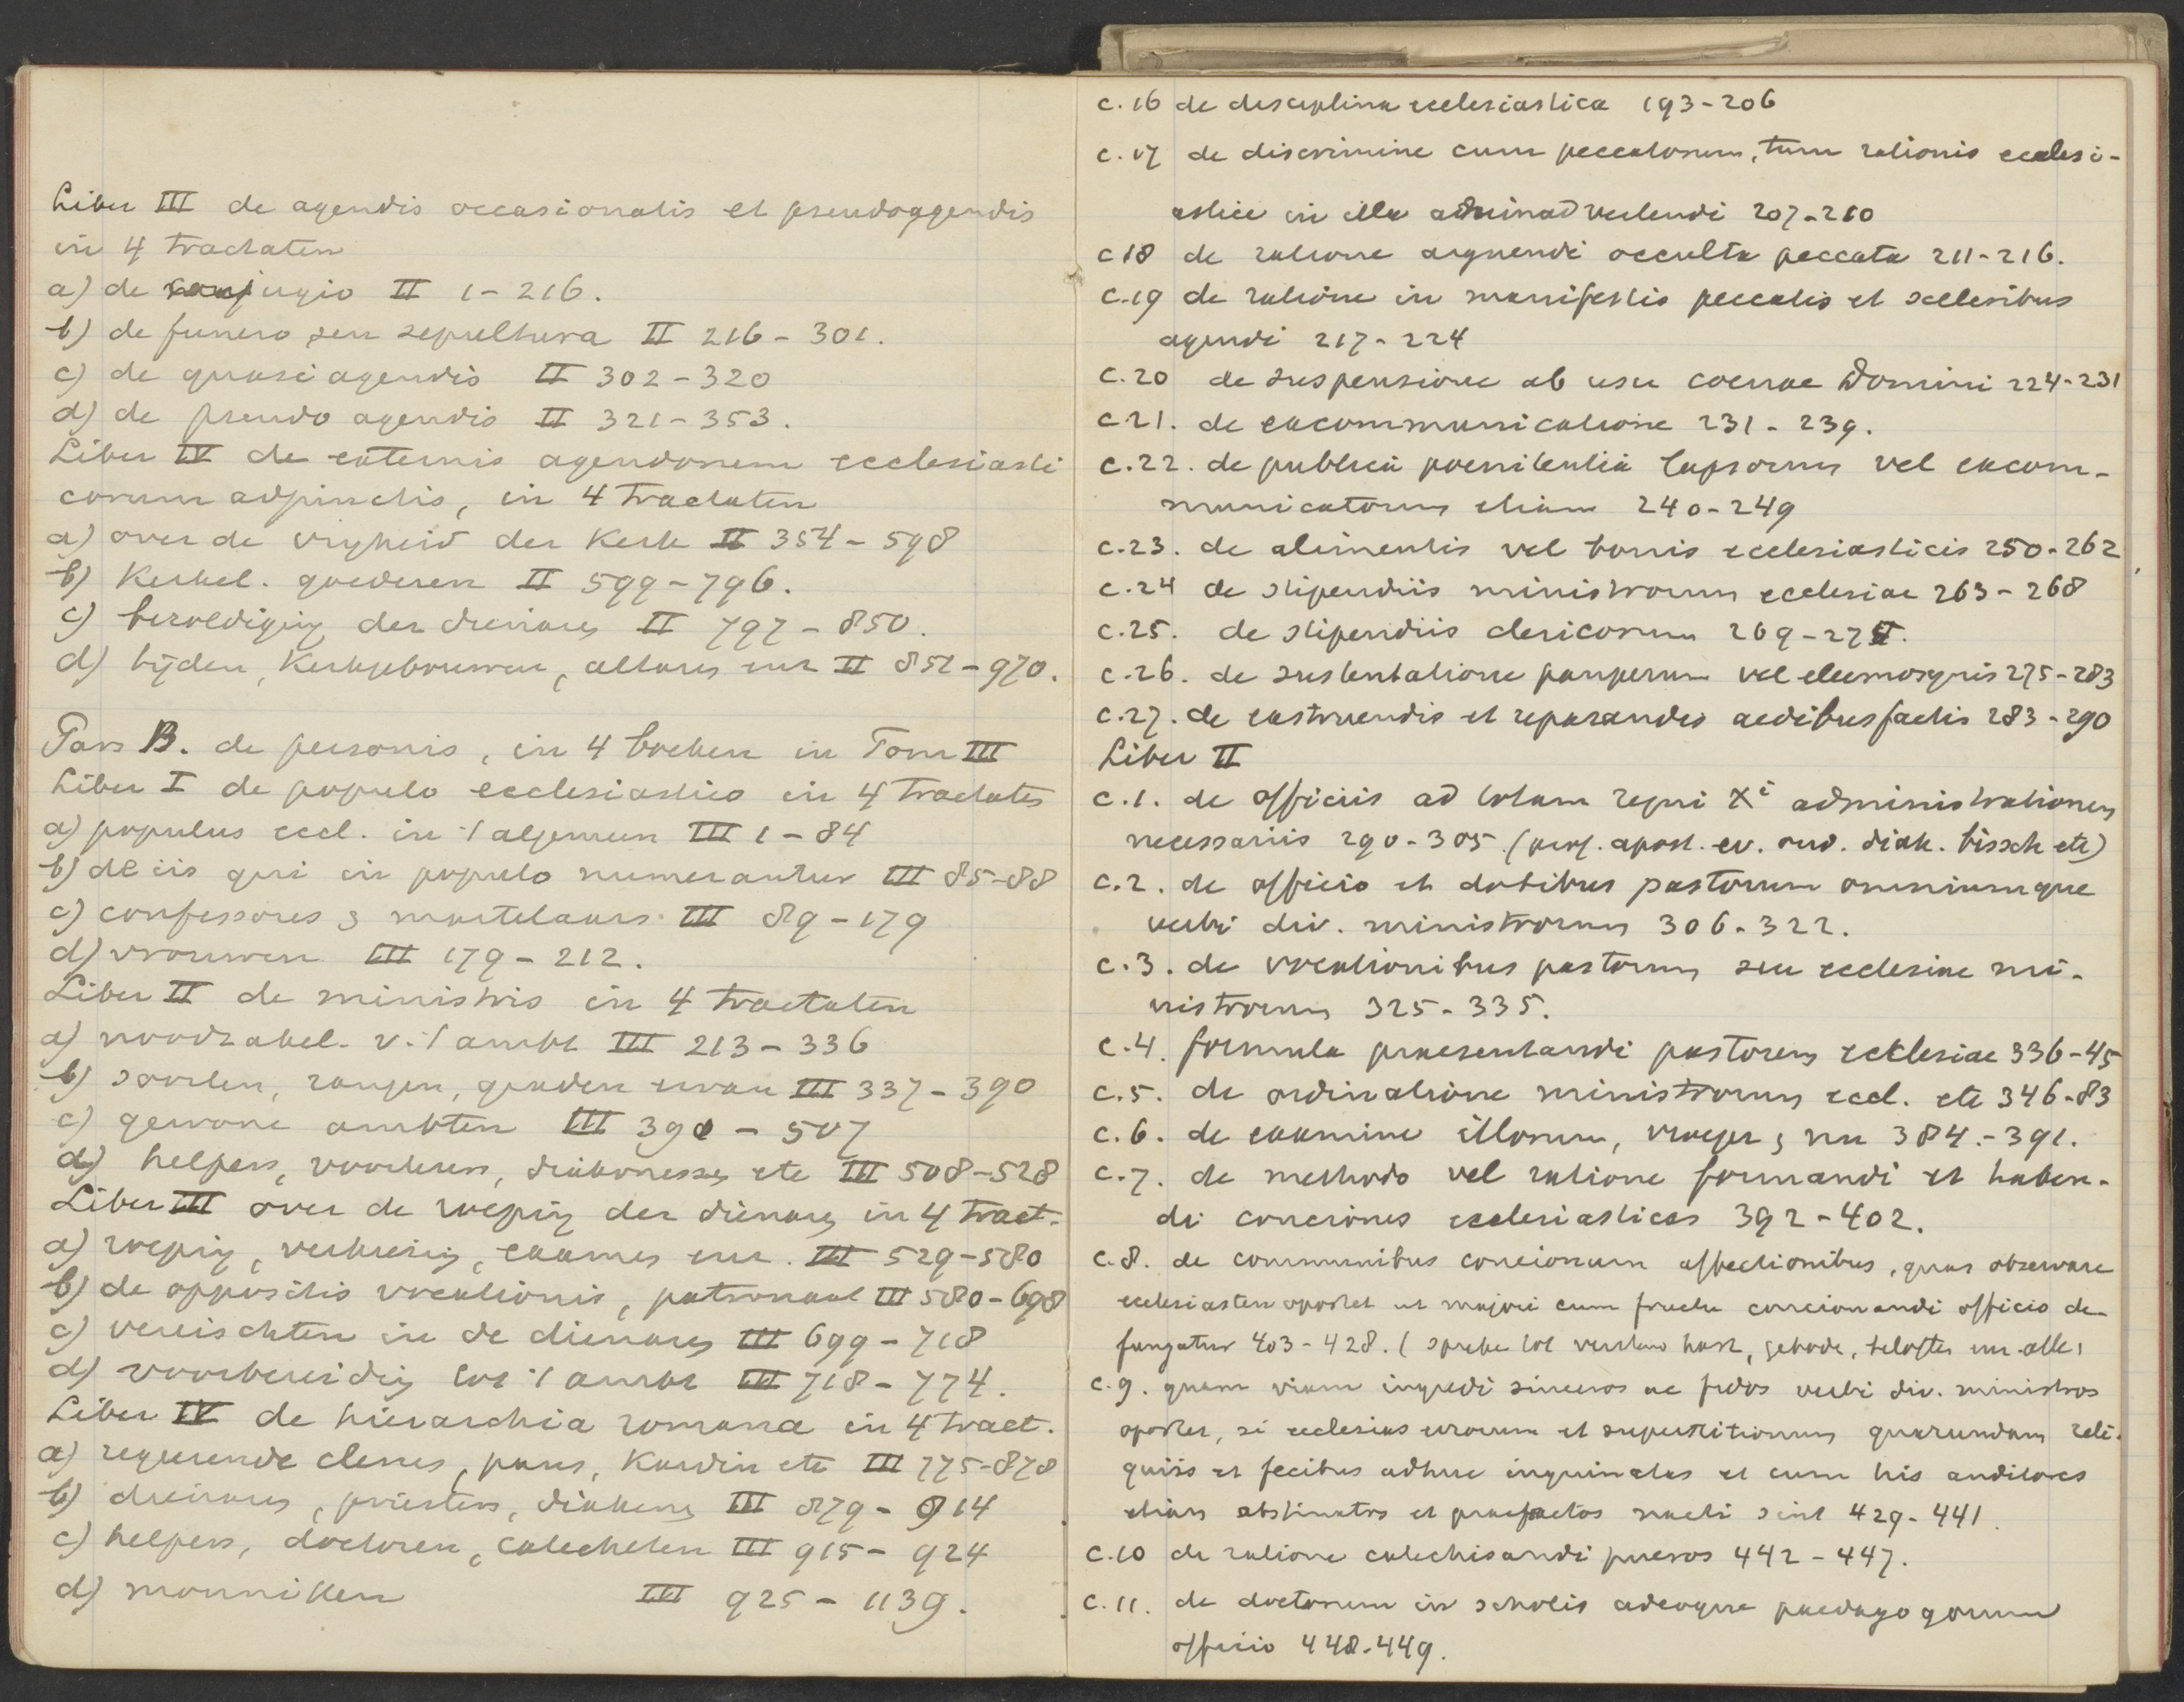 Liber III de agendis occasionalis et pseudoagendis
in 4 tractaten
a) de conjugio II 1-216.
b) de funero seu sepultura II 216-301.
c) de quasi agendis II 302-320
d) de pseudo agendis II 321-353.
Liber IV de externis agendorum ecclesiasti
corum adjunctis, in 4 tractaten
a) over de vrijheid der Kerk II 354-598
b) Kerkel. goederen II 599-796.
c) bezoldiging der dienaars II 797-850.
d) tijden, Kerkgebouwen, altaars enz II 851-970.
Pars B. de personis, in 4 boeken in Tom III
Liber I de populo ecclesiastico in 4 tractates
a) populus eccl. in 't algemeen III 1-84
b) de iis qui in populo numerantur III 85-88
c) confessores & martelaars III 89-179
d) vrouwen III 179-212.
Liber II de ministris in 4 tractaten
a) noodzakel. v. 't ambt III 213-336
b) soorten, rangen, graden ervan III 337-390
c) gewone ambten III 390-507
d) helpers, voorlezers, diakonessen etc III 508-528
Liber III over de roeping der dienaars in 4 tract.
a) roeping, verkiezing, examen enz. III 529-580
b) de oppositis vocationis, patronaat III 580-698
c) vereischten in de dienaars III 699-718
d) voorbereiding tot 't ambt III 718-774.
Liber IV de hierarchia romana in 4 tract.
a) regeerende clerus, paus, Kardin etc III 775-878
b) dienaars, priesters, diakens III 879-914
c) helpers, doctoren, catecheten III 915-924
d) monniken III 925-1139.
c.16 de disciplina ecclesiastica 193-206
c.17 de discrimine cum peccatorum, tum rationis ecclesi-
astice in illa animadvertendi 207-210
c18 de ratione arguendi occulta peccata 211-216.
c.19 de ratione in manifestis peccatis et sceleribus
agendi 217-224
c.20 de suspensione ab usu coenae Domini 224-231
c.21. de excommunicatione 231-239.
c.22. de publica poenitentia lapsorum vel excom-
municatorum etiam 240-249
c.23. de alimentis vel bonis ecclesiasticis 250-262
c.24 de stipendiis ministrorum ecclesiae 263-268
c.25. de stipendiis clericorum 269-275.
c.26. de sustentatione pauperum vel eleemosynis 275-283
c.27. de exstruendis et reparandis aedibus sactis 283-290
Liber II
c.1. de officiis ad totam regni Xi administrationem
necessariis 290-305 (prof. apost. ev. oud. diak. bissch etc)
c.2. de officio et dotibus pastorum omniumque
verbi div. ministrorum 306-322.
c.3. de vocationibus pastorum seu ecclesiae mi-
nistrorum 325-335.
c.4. formula praesentandi pastorem ecclesiae 336-45
c.5. de ordinatione ministrorum eccl. etc 346-83
c.6. de examine illorum, vroeger & nu 384-391.
c.7. de methodo vel ratione formandi et haben-
di conciones ecclesiasticas 392-402.
c.8. de communibus concionum affectionibus, quas observare
ecclesiasten oportet ut majori cum fructu concionandi officio de-
fungatur 403-428. (spreke tot verstand hart, gebode, belofte
c.9. quam viam ingredi sinceros ac fidos verbi div. ministros
oportet, si ecclesias errorum et superstitionum quarundam reli-
quiis et fecibus adhuc inquinatas et cum his auditores
etiam obstinatos et praefractos nacti sint 429-441.
c.10 de ratione catechisandi pueros 442-447.
c.11. de doctorum in scholis adeoque paedagogorum
officio 448-449.